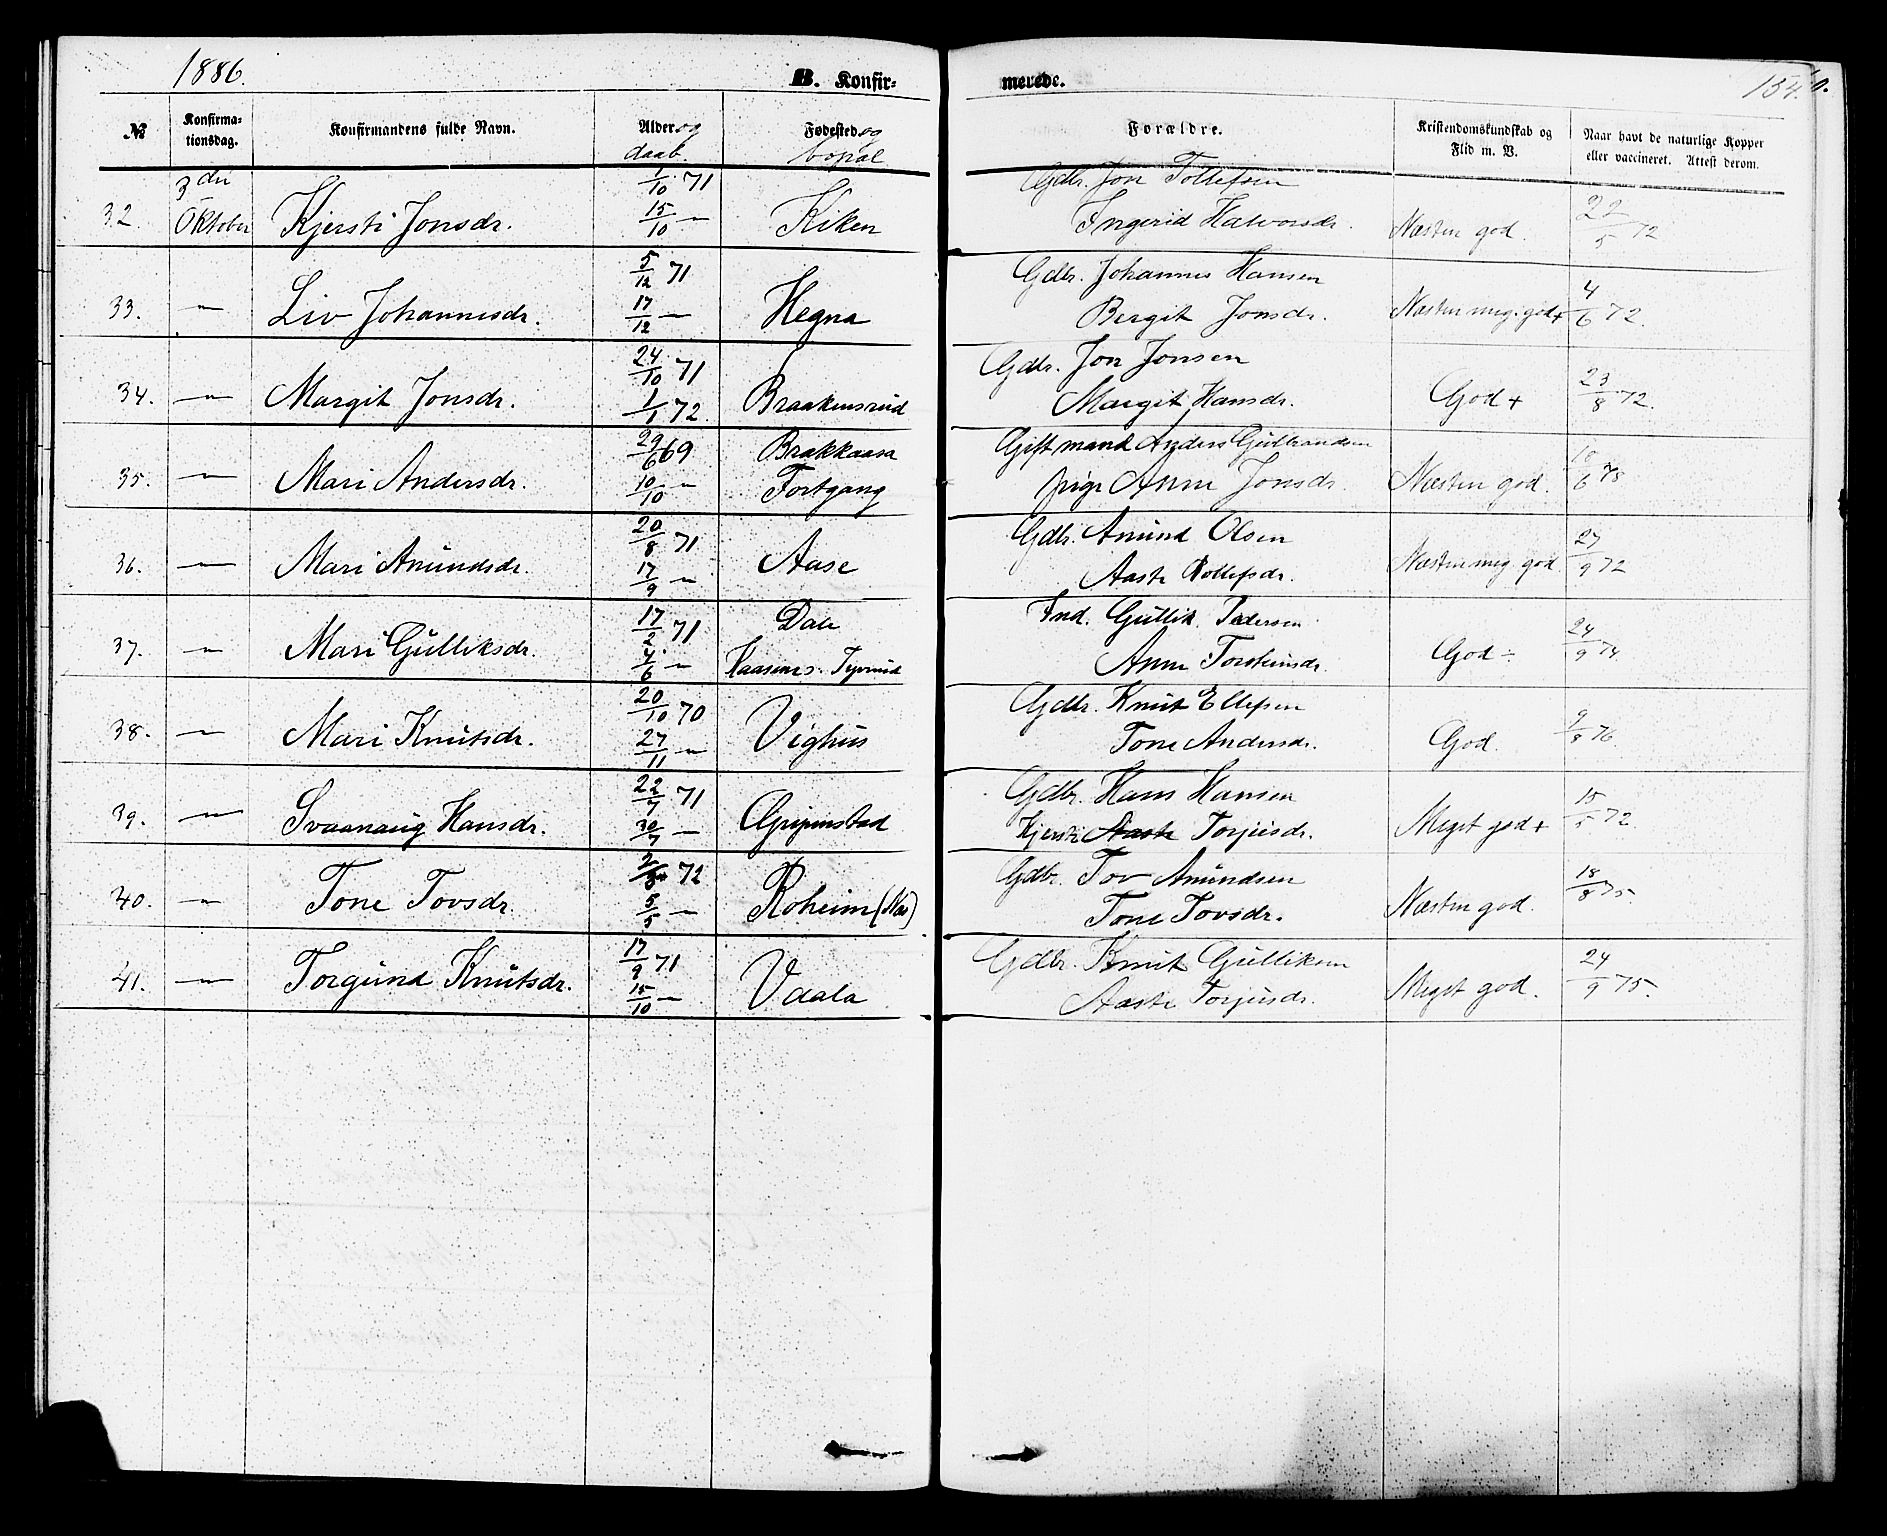 1886.
B. Konfir-
merede.
134.
№
Konfirma-
tionsdag.
Konfirmandens fulde Navn.
Alder og
daab.
Fødested og
bopæl
Forældre.
Kristendomskundskab og
Flid m. V.
Naar havt de naturlige Kopper
eller vaccineret. Attest derom.
32. 3die Oktober Kjersti Jonsdr. 1/10 71 15/10 — Kiken Gdbr. Jon Tollefsen
Ingerid Halvorsdr. Næsten god. 22/5 72
33. — Liv Johannesdr. 5/12 71 17/12 — Hegna Gdbr. Johannes Hansen
Bergit Jonsdr. Næsten meg. god + 4/6 72.
34. — Margit Jonsdr. 24/10 71 1/1 72 Braakensrud Gdbr. Jon Jonsen
Margit Hansdr. God + 23/8 72.
35. — Mari Andersdr. 29/6 69 10/10 — Brakkaasa
Fortgang Gift mand Anders Gulbrandsen
pige Anne Jonsdr Næsten god. 10/6 78
36. — Mari Amundsdr. 20/8 71 17/9 — Aase Gdbr. Amund Olsen
Aaste Rollefsdr. Næsten meg. god 27/9 72
37. — Mari Gulliksdr. 17/2 71 4/6 — Dale
Gullik Pedersen
Ind.
Anne Torsteinsdr. God ÷ 24/9 74
38. — Mari Knutsdr. 20/10 70 27/11 — Vighus Gdbr. Knut Ellefsen
Tone Andersdr. God. 9/8 76.
39. — Svaanaug Hansdr. 22/7 71 30/7 — Gripinstad Gdbr. Hans Hansen
Kjersti Aaste Torjusdr. Meget god + 15/5 72.
40. — Tone Tovsdr. 72 5/5 — Roheim Gdbr. Tov Amundsen
Tone Tovsdr. Næsten god. 18/8 75.
41. — Torgund Knutsdr. 17/9 71 15/10 — Vaala Gdbr. Knut Gulliksen
Aaste Torjusdr. Meget god. 24/9 75.